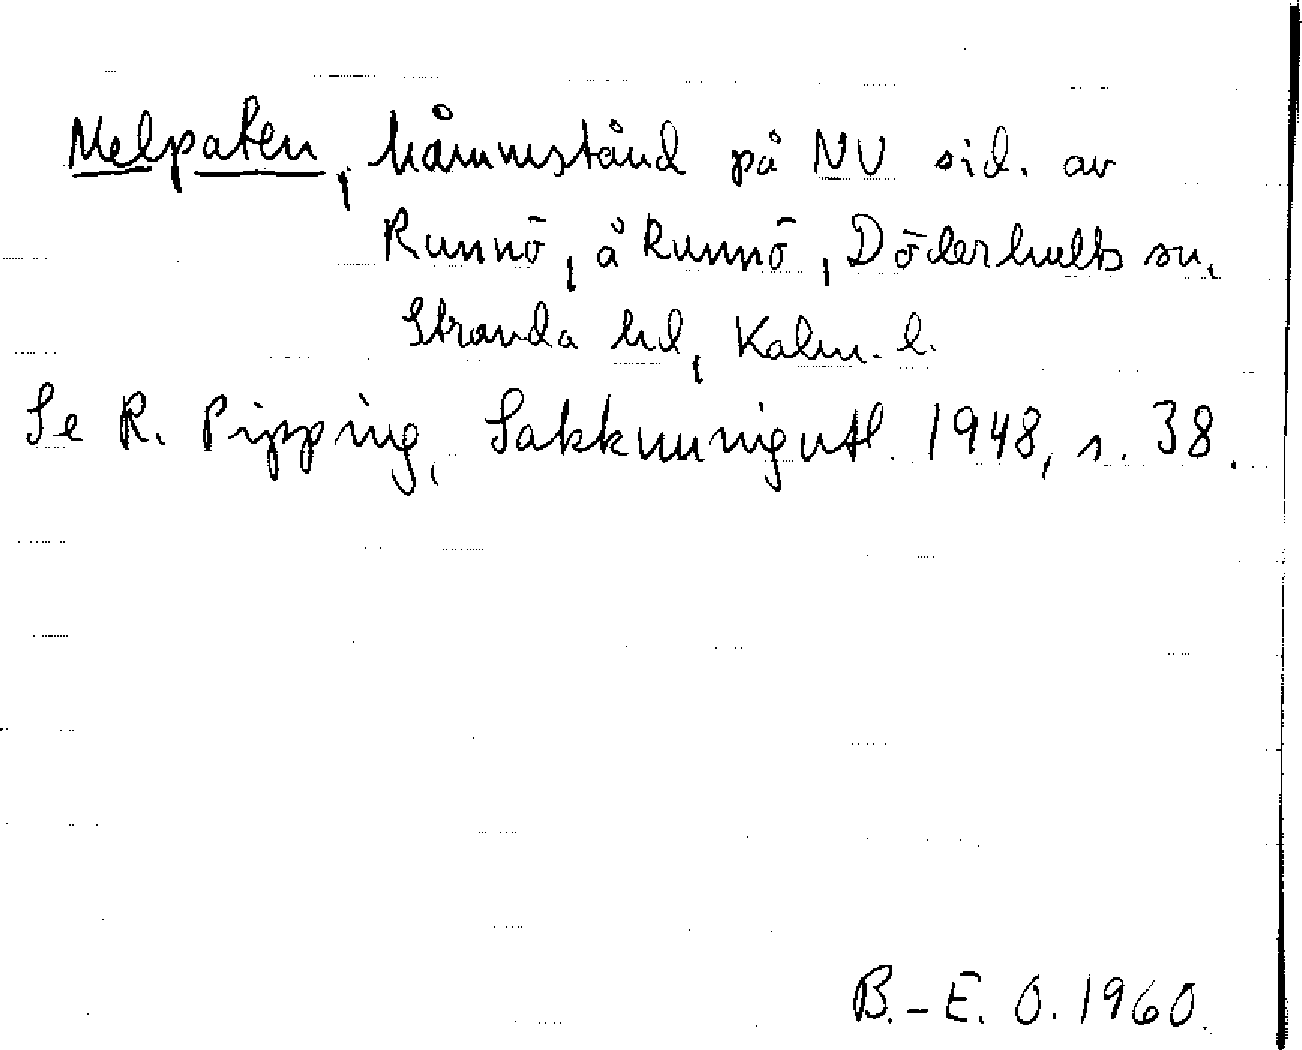 Melpaten, håmmstånd på NV sid. av
Runnö, å Runnö, Döderhults sn,
Stranda hd, Kalm. l.
Se R. Pipping, Sakkunnigutl. 1948, s. 38.
B.-E. O. 1960.